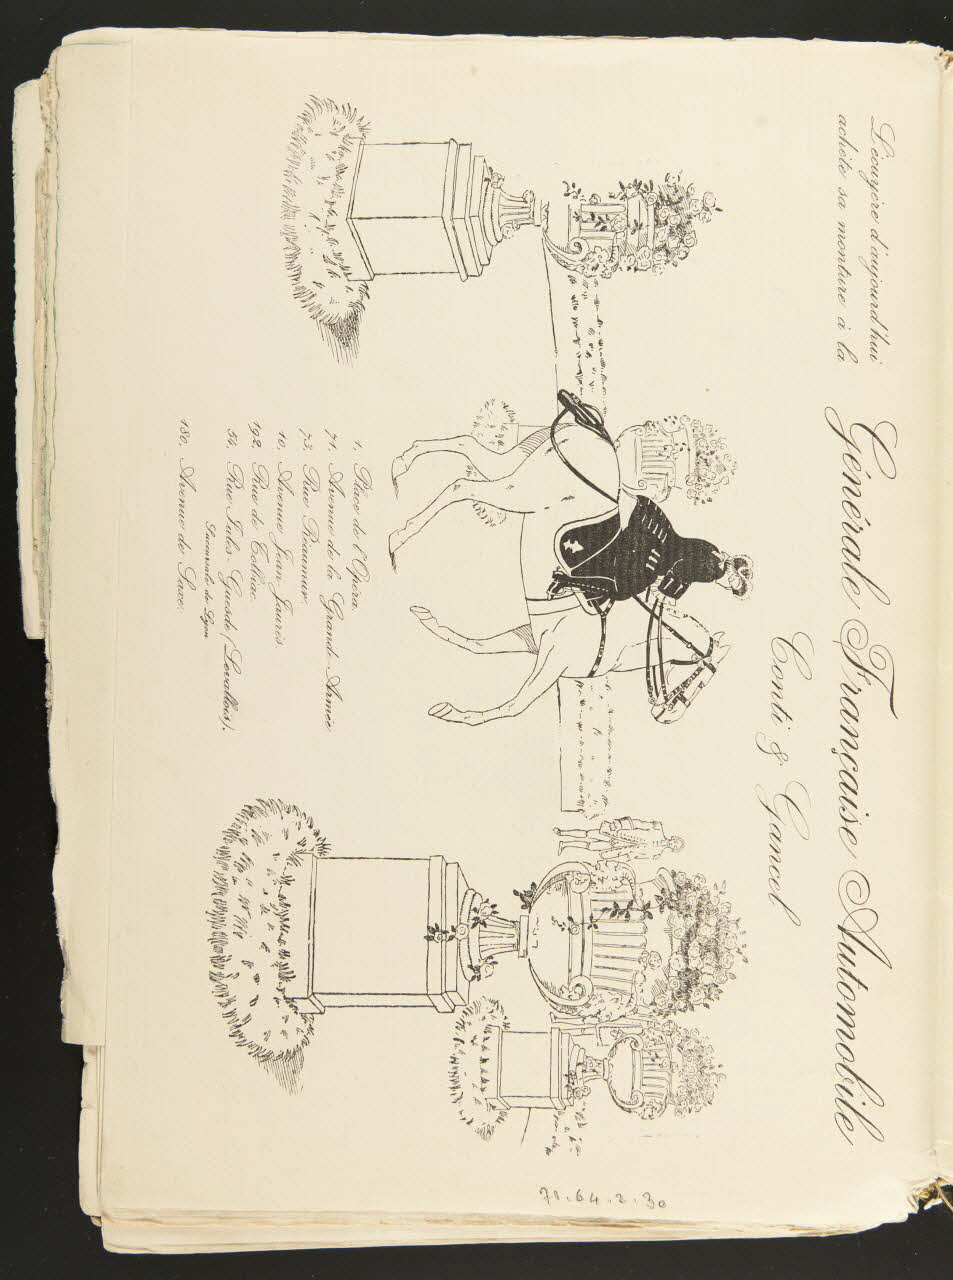 L'écuyère d'aujourd'hui
achète sa monture à la
Générale Française Automobile
Conti & Gancel
1, Place de l'Opéra.
71, Avenue de la Grand-Armée
73, Rue Réaumur.
10, Avenue Jean-Jaurès
192, Rue de Tolbiac.
54, Rue Jules-Guesde (Levallois).
Succursale de Lyon
180, Avenue de Saxe.
71.64.2.30